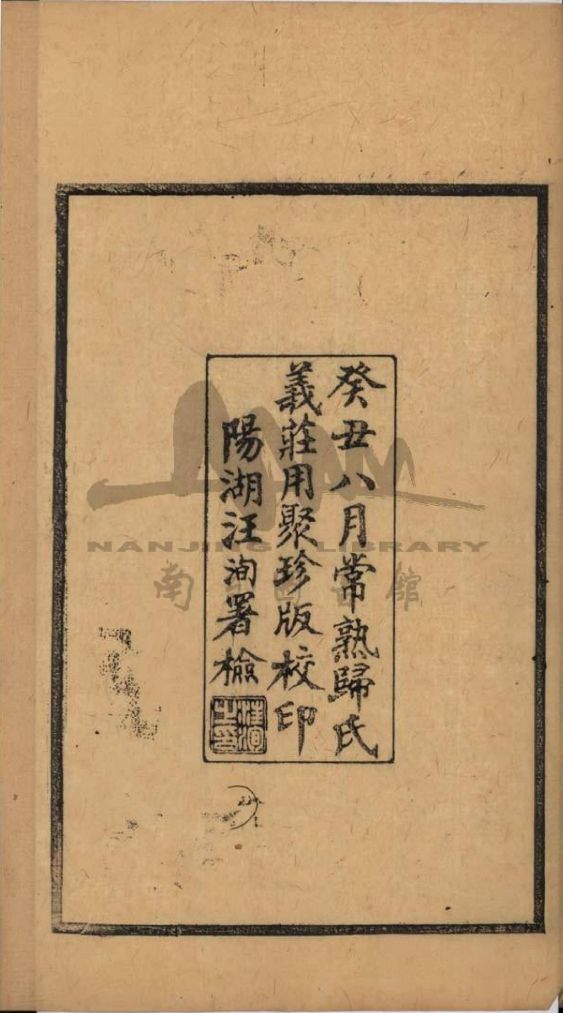 癸丑八月常熟歸氏
義莊用聚珍版校印
陽湖汪洵署檢
汪洵之印
NANJING LIBRARY
南 書館